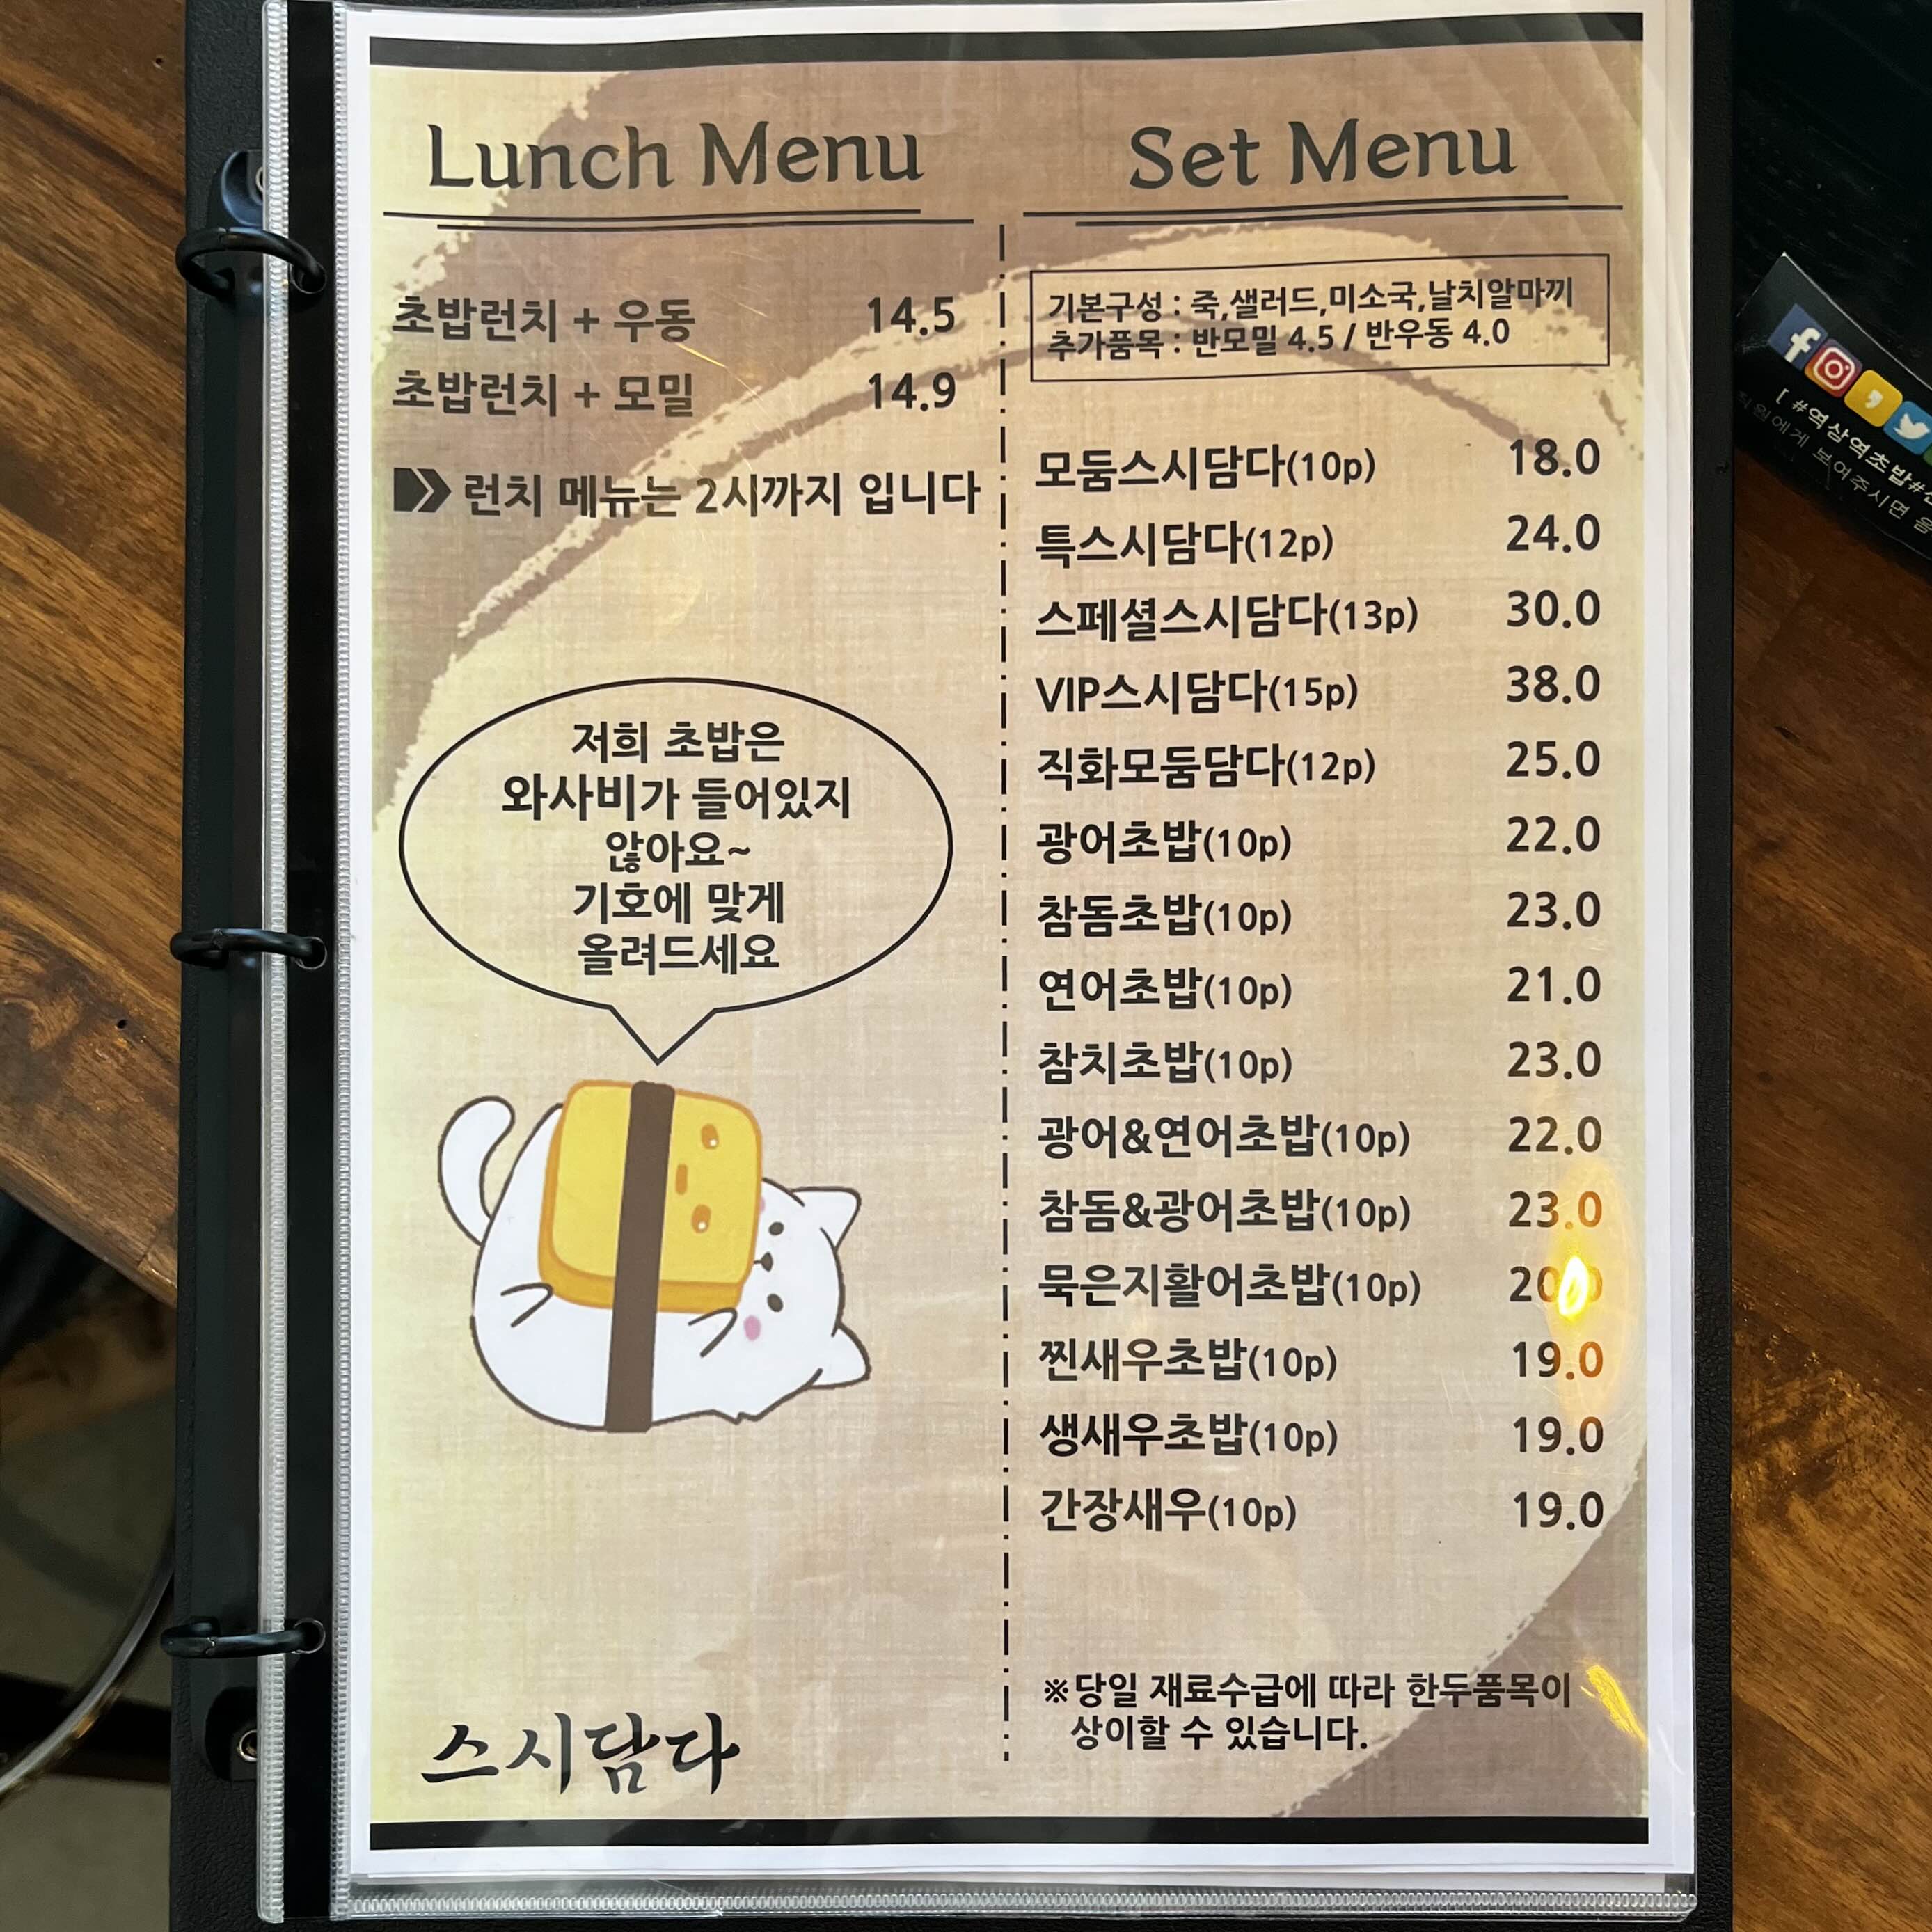 Lunch Menu
초밥런치 + 우동 14.5
초밥런치 + 모밀 14.9
런치 메뉴는 2시까지 입니다
저희 초밥은
와사비가 들어있지
않아요~
기호에 맞게
올려드세요
스시담다
Set Menu
기본구성 : 죽,샐러드,미소국,날치알마끼
추가품목 : 반모밀 4.5 / 반우동 4.0
모둠스시담다(10p) 18.0
특스시담다(12p) 24.0
스페셜스시담다(13p) 30.0
VIP스시담다(15p) 38.0
직화모둠담다(12p) 25.0
광어초밥(10p) 22.0
참돔초밥(10p) 23.0
연어초밥(10p) 21.0
참치초밥(10p) 23.0
광어&연어초밥(10p) 22.0
참돔&광어초밥(10p) 23.0
묵은지활어초밥(10p)
찐새우초밥(10p) 19.0
생새우초밥(10p) 19.0
간장새우(10p) 19.0
※당일 재료수급에 따라 한두품목이
상이할 수 있습니다.
[ #역삼역초밥
보여주시면